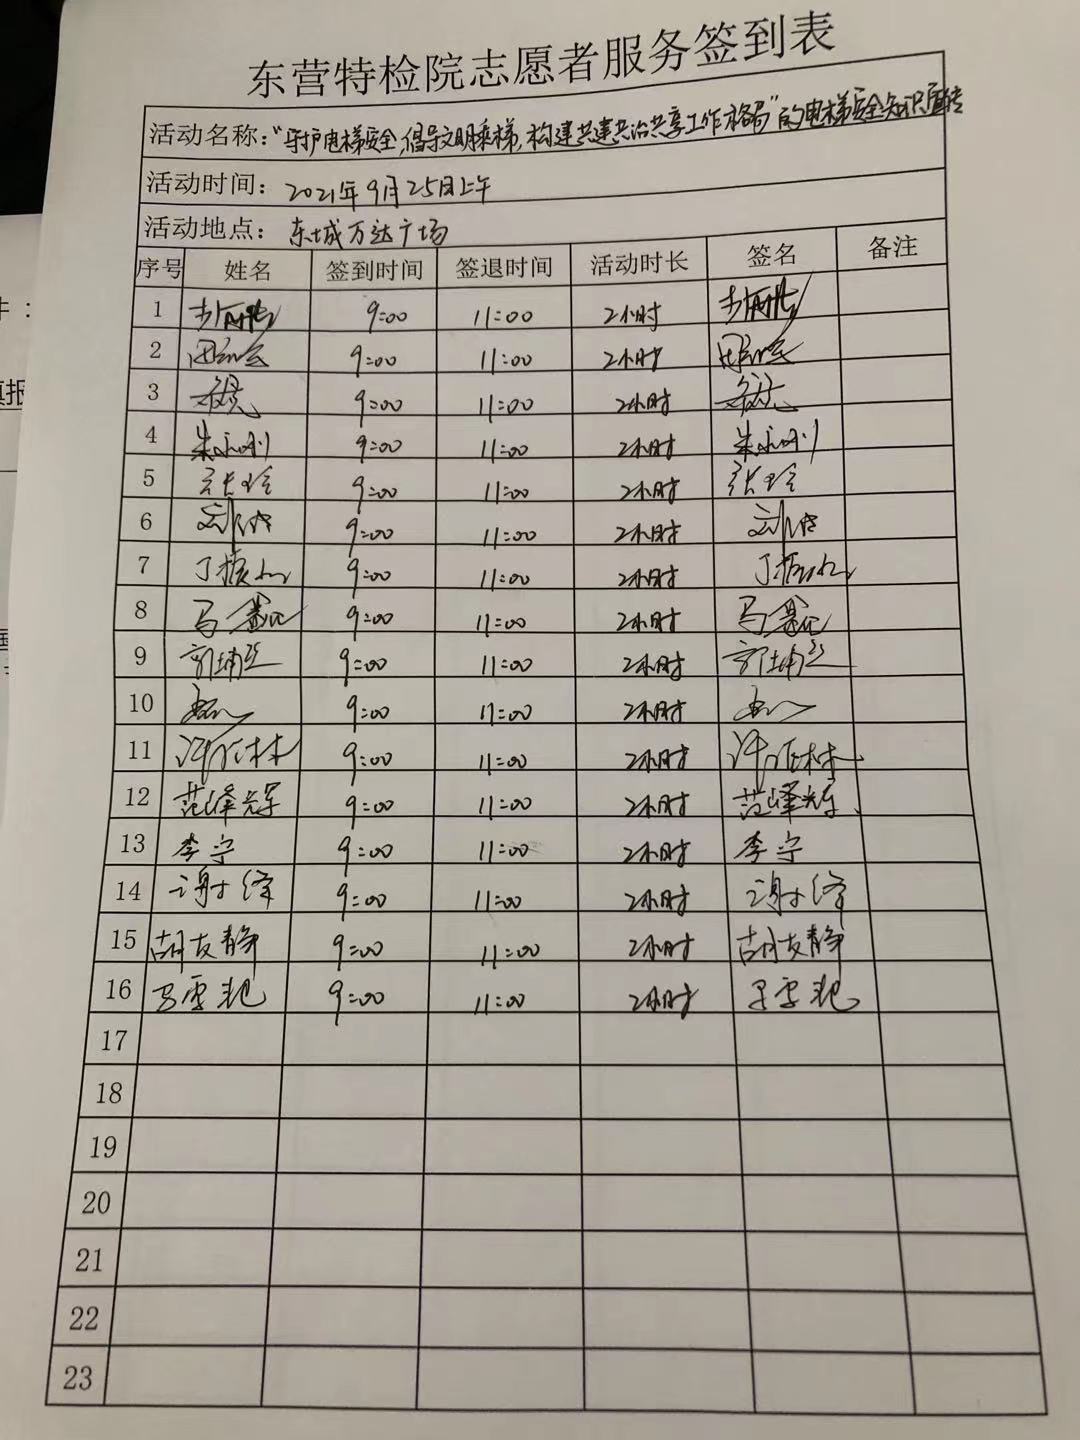 东营特检院志愿者服务签到表
活动名称："守护电梯安全,倡导文明乘梯,构建共建共治共享工作格局"的电梯安全知识宣传
活动时间：2021年9月25日上午
活动地点：东城万达广场
序号 姓名 签到时间 签退时间 活动时长 签名 备注
1 9:00 11:00 2小时
2 9:00 11:00 2小时
3 9:00 11:00 2小时
4 朱永刚 9:00 11:00 2小时 朱永刚
5 张玲 9:00 11:00 2小时 张玲
6 9:00 11:00 2小时
7 丁振 9:00 11:00 2小时 丁振
8 马 9:00 11:00 2小时 马
9 郭 9:00 11:00 2小时 郭
10 9:00 11:00 2小时
11 许 林 9:00 11:00 2小时 许 林
12 范峰辉 9:00 11:00 2小时 范峰辉
13 李宁 9:00 11:00 2小时 李宁
14 谢 9:00 11:00 2小时 谢
15 胡友静 9:00 11:00 2小时 胡友静
16 马雪艳 9:00 11:00 2小时 马雪艳
17
18
19
20
21
22
23
填报